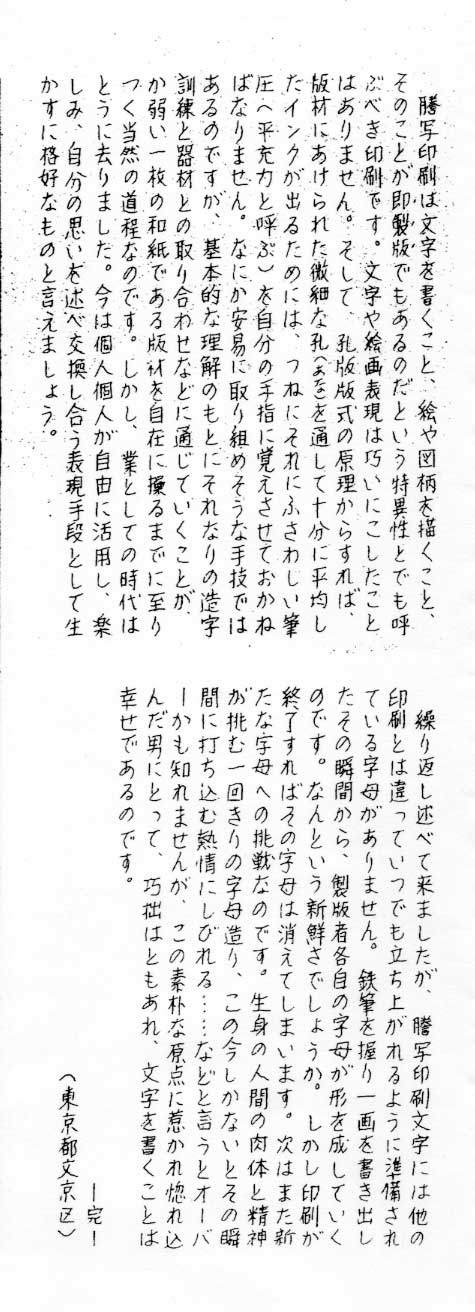 謄写印刷は文字を書くこと、絵や図柄を描くこと、
そのことが即製版でもあるのだという特異性とでも呼
ぶべき印刷です。文字や絵画表現は巧いにこしたこと
はありません。そして、孔版版式の原理からすれば、
版材にあけられた微細な孔(あな)を通して十分に平均し
たインクが出るためには、つねにそれにふさわしい筆
圧(平充力と呼ぶ)を自分の手指に覚えさせておかね
ばなりません。なにか安易に取り組めそうな手技では
あるのですが、基本的な理解のもとにそれなりの造字
訓練と器材との取り合わせなどに通じていくことが、
か弱い一枚の和紙である版材を自在に操るまでに至り
つく当然の道程なのです。しかし、業としての時代は
とうに去りました。今は個人個人が自由に活用し、楽
しみ、自分の思いを述べ交換し合う表現手段として生
かすに格好なものと言えましょう。
繰り返し述べて来ましたが、謄写印刷文字には他の
印刷とは違っていつでも立ち上がれるように準備され
ている字母がありません。鉄筆を握り一画を書き出し
たその瞬間から、製版者各自の字母が形を成していく
のです。なんという新鮮さでしょうか。しかし印刷が
終了すればその字母は消えてしまいます。次はまた新
たな字母への挑戦なのです。生身の人間の肉体と精神
が挑む一回きりの字母造り、この今しかないとその瞬
間に打ち込む熱情にしびれる……などと言うとオーバ
ーかも知れませんが、この素朴な原点に惹かれ惚れ込
んだ男にとって、巧拙はともあれ、文字を書くことは
幸せであるのです。
ー完ー
(東京都文京区)